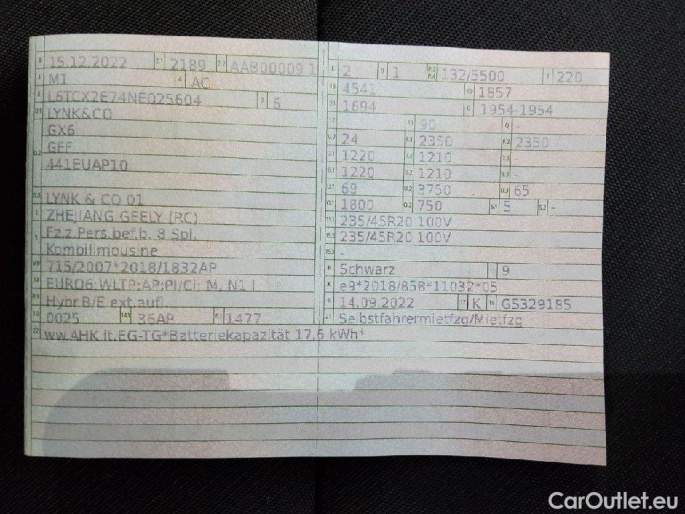 15.12.2022 2189 AAB00009 1
M1 AC
L6TCX2E74NE025604 6
LYNK&CO
GX6
GFF
441EUAP10
LYNK & CO 01
ZHEJIANG GEELY (RC)
Fz.z.Pers.bef.b. 8 Spl.
Kombilimousine
715/2007*2018/1832AP
EURO6 WLTP;AP;PI/CI; M, N1 I
Hybr.B/E ext.aufl
0025 36AP 1477
ww.AHK lt.EG-TG*Batteriekapazität 17,6 kWh*
2 1 132/5500 220
4541 1857
1694 1954-1954
90 -
24 2350 2350
1220 1210 -
1220 1210 -
69 3750 65
1800 750 5 -
235/45R20 100V
235/45R20 100V
-
Schwarz 9
e9*2018/858*11032*05
14.09.2022 K GS329185
Selbstfahrermietfzg/Mietfzg
CarOutlet.eu